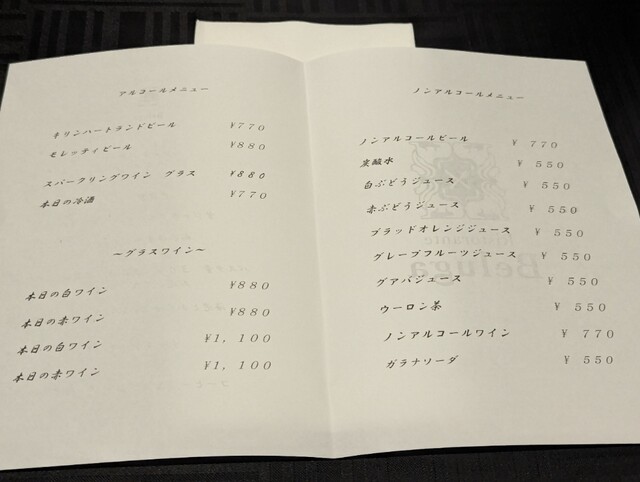 アルコールメニュー
キリンハートランドビール ¥770
モレッティビール ¥880
スパークリングワイン グラス ¥880
本日の冷酒 ¥770
～グラスワイン～
本日の白ワイン ¥880
本日の赤ワイン ¥880
本日の白ワイン ¥1，100
本日の赤ワイン ¥1，100
ノンアルコールメニュー
ノンアルコールビール ¥ 770
炭酸水 ¥ 550
白ぶどうジュース ¥ 550
赤ぶどうジュース ¥ 550
ブラッドオレンジジュース ¥ 550
グレープフルーツジュース ¥ 550
グアバジュース ¥ 550
ウーロン茶 ¥ 550
ノンアルコールワイン ¥ 770
ガラナソーダ ¥ 550
Ristorante
Beluga